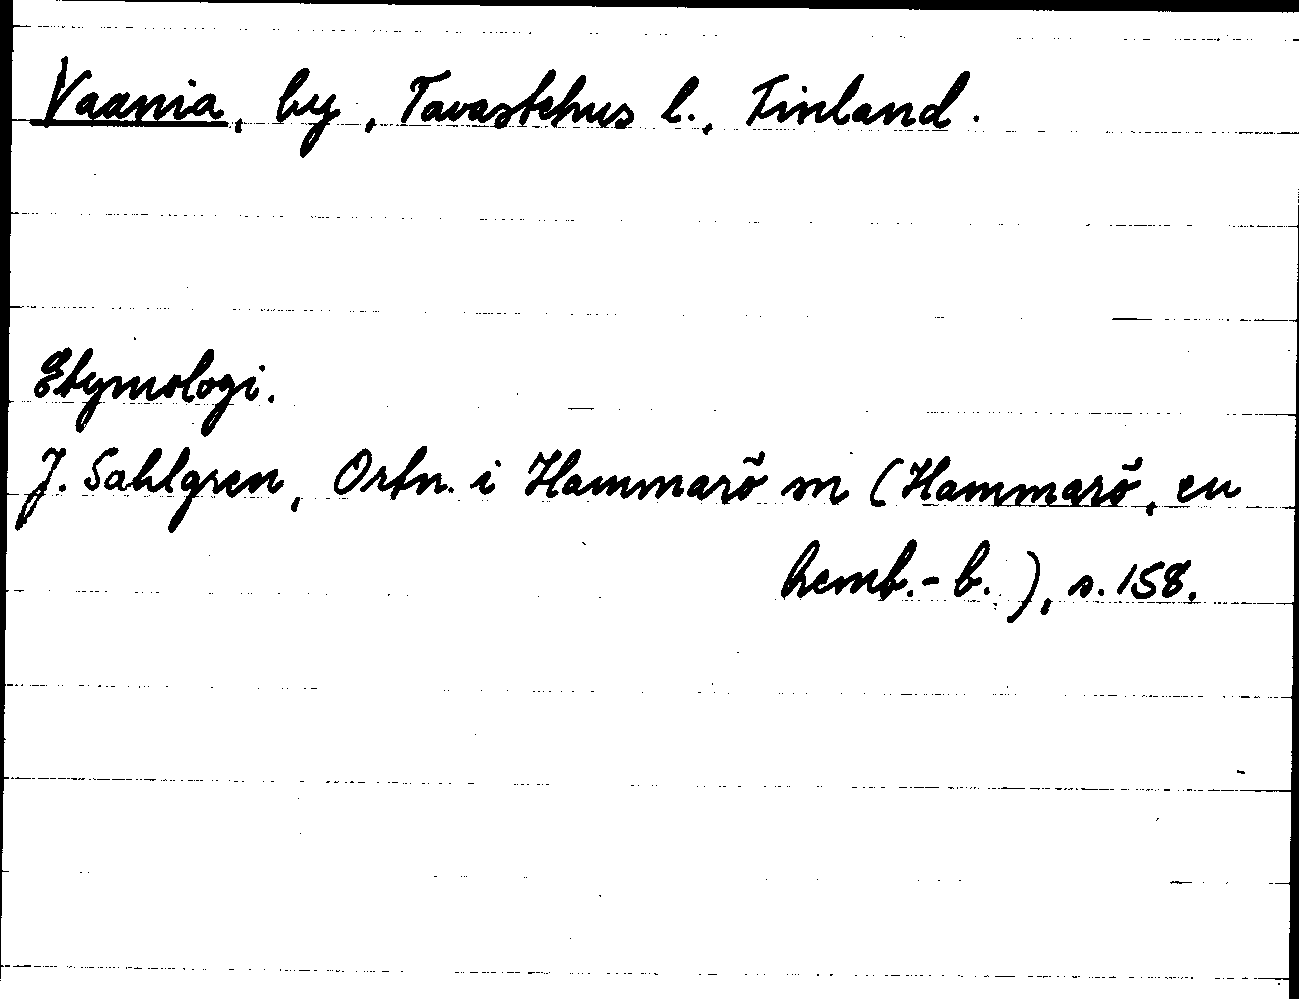 Vaania, by, Tavastehus l., Finland.
Etymologi.
J. Sahlgren, Ortn. i Hammarö sn (Hammarö, en
hemb.-b.), s. 158.